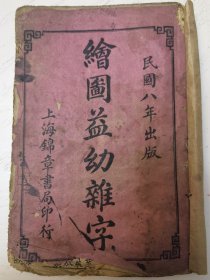 民國八年出版
繪圖益幼雜字
上海錦章書局印行